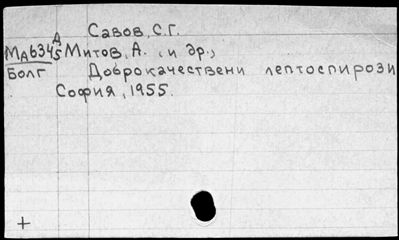 Савов, С.Г.
МА6345 А Митов, А. и др.,
Болг Доброкачествени лептоспирози
София, 1955.
+